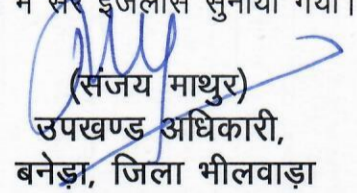 में सरे इजलास सुनाया गया।
(संजय माथुर)
उपखण्ड अधिकारी,
बनेड़ा, जिला भीलवाड़ा